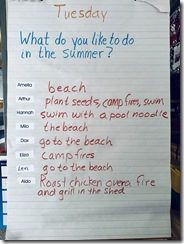 Tuesday
What do you like to do
in the Summer?
Amelia beach
Arthur plant seeds, campfires, swim
Hannah swim with a pool noodle
Milo the beach
Dax go to the beach
Eliza Campfires
Levi go to the beach
Aldo Roast chicken over a fire
and grill in the shed